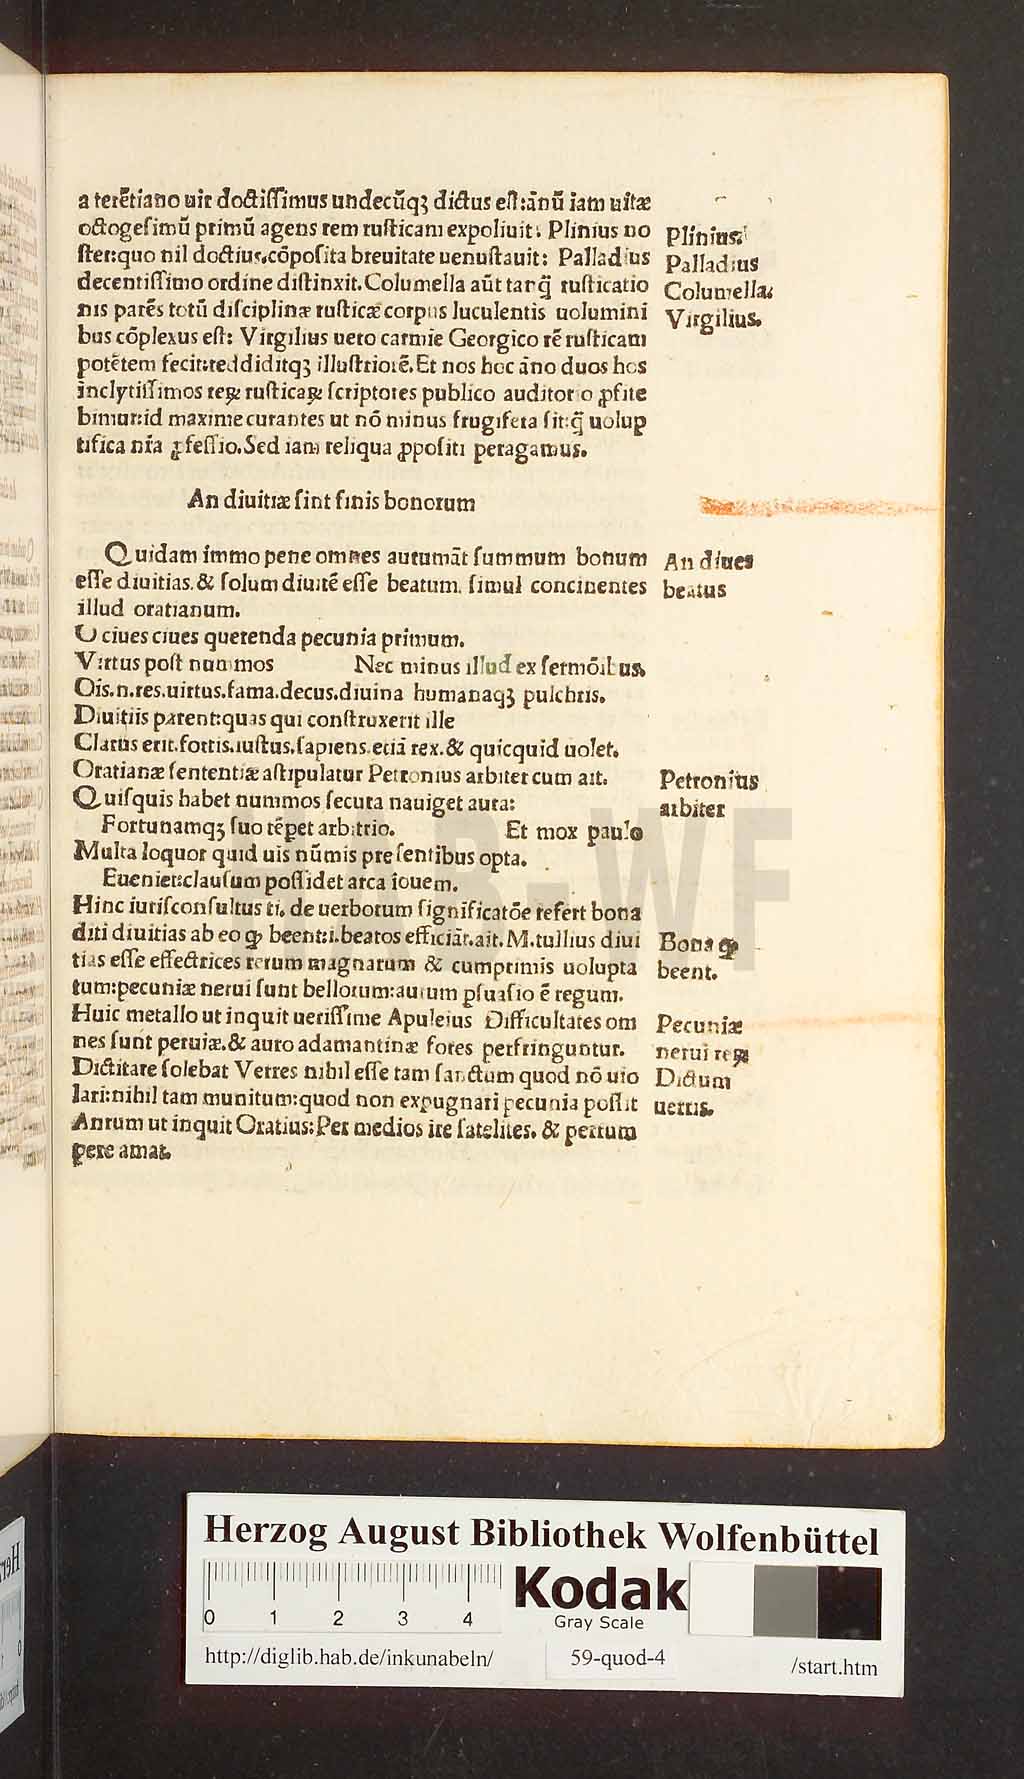 a terētiano uir doctiſſimus undecūqꝫ dictus eſt:ānū iam uitæ
octogeſimū primū agens rem ruſticam expoliuit: Plinius no
ſter:quo nil doctius.cōpoſita breuitate uenuſtauit: Palladius
decentiſſimo ordine diſtinxit.Columella aūt tanq̄ ruſticatio
nis parēs totū diſciplinæ ruſticæ corpus luculentis uolumini
bus cōplexus eſt: Virgilius uero carmīe Georgico rē ruſticam
potētem fecit:reddiditqꝫ illuſtriorē.Et nos hoc āno duos hos
inclytiſſimos reꝝ ruſticaꝝ ſcriptores publico auditorio ꝓfite
bimur:id maxime curantes ut nō minus frugifera ſit:q̄ uolup
tifica nr̄a ꝓfeſſio.Sed iam reliqua ꝓpoſiti peragamus.
Plinius.
Palladius
Columella.
Virgilius.
An diuitiæ ſint finis bonorum
Quidam immo pene omnes autumāt ſummum bonum
eſſe diuitias.& ſolum diuitē eſſe beatum. ſimul concinentes
illud oratianum.
O ciues ciues querenda pecunia primum.
Virtus poſt nummos Nec minus illud ex ſermōibus.
Ois.n.res.uirtus.fama.decus.diuina humanaqꝫ pulchris.
Diuitiis parent:quas qui conſtruxerit ille
Clarus erit.fortis.iuſtus.ſapiens.etiā rex.& quicquid uolet.
Oratianæ ſententiæ aſtipulatur Petronius arbiter cum ait.
Quiſquis habet nummos ſecura nauiget aura:
Fortunamqꝫ ſuo tēpet arbitrio. Et mox paulo
Multa loquor quid uis nūmis preſentibus opta.
Eueniet:clauſum poſſidet arca iouem.
Hinc iuriſconſultus ti. de uerborum ſignificatōe refert bona
diti diuitias ab eo ꝙ beent:i.beatos efficiāt.ait.M.tullius diui
tias eſſe effectrices rerum magnarum & cumprimis uolupta
tum:pecuniæ nerui ſunt bellorum:aurum pſuaſio ē regum.
Huic metallo ut inquit ueriſſime Apuleius Difficultates om
nes ſunt peruiæ.& auro adamantinæ fores perfringuntur.
Dictitare ſolebat Verres nihil eſſe tam ſanctum quod nō uio
lari:nihil tam munitum:quod non expugnari pecunia poſſit
Aurum ut inquit Oratius:Per medios ire ſatelites. & perrum
pere amat.
An diues
beatus
Petronius
arbiter
Bona ꝙ
beent.
Pecuniæ
nerui reꝝ
Dictum
uerris.
HAB-WF
Herzog August Bibliothek Wolfenbüttel
0 1 2 3 4
Kodak
Gray Scale
http://diglib.hab.de/inkunabeln/ 59-quod-4 /start.htm